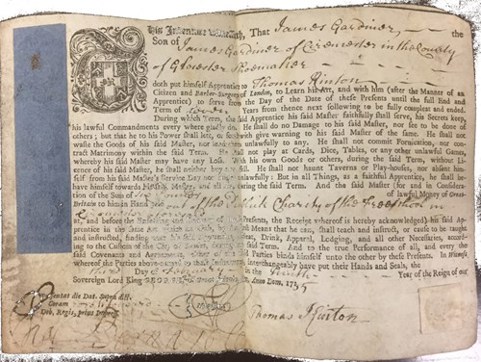 his Indenture Witnesseth, That James Gardiner the
Son of James Gardiner of Cirencester in the County
of Glocester Shoemaker
doth put himself Apprentice to Thomas Hinton
Citizen and Barber-Surgeon of London, to Learn his Art, and with him (after the Manner of an
Apprentice) to serve from the Day of the Date of these Presents until the full End and
Term of Years from thence next following to be fully compleat and ended.
During which Term, the said Apprentice his said Master faithfully shall serve, his Secrets keep,
his lawful Commandments every where gladly do. He shall do no Damage to his said Master, nor see to be done of
others; but that he to his Power shall let, or forthwith give warning to his said Master of the same. He shall not
waste the Goods of his said Master, nor lend them unlawfully to any. He shall not commit Fornication, nor con-
tract Matrimony within the said Term. He shall not play at Cards, Dice, Tables, or any other unlawful Games,
whereby his said Master may have any Loss. With his own Goods or others, during the said Term, without Li-
cence of his said Master, he shall neither buy nor sell. He shall not haunt Taverns or Play-houses, nor absent him-
self from his said Master's Service Day nor Night unlawfully: But in all Things, as a faithful Apprentice, he shall be-
have himself towards his said Master, and all his, during the said Term. And the said Master (for and in Consider-
ation of the Sum of of lawful Money of Great-
Britain to him in Hand out of the Charity of the
at, and before the Sealing and Presents, the Receipt whereof is hereby acknowledged) his said Ap-
prentice in the same Art which he by the best Means that he can, shall teach and instruct, or cause to be taught
and instructed, finding Drink, Apparel, Lodging, and all other Necessaries, accord-
ing to the Custom of the City of London, during the said Term. And to the true Performance of all, and every the
said Covenants and Agreements, either of the said Parties binds himself unto the other by these Presents. In Witness
whereof the Parties above-named to these Indentures interchangeably have put their Hands and Seals, the
third Day of February in the Year of the Reign of our
Sovereign Lord King Anno Dom. 1735
Thomas Hinton